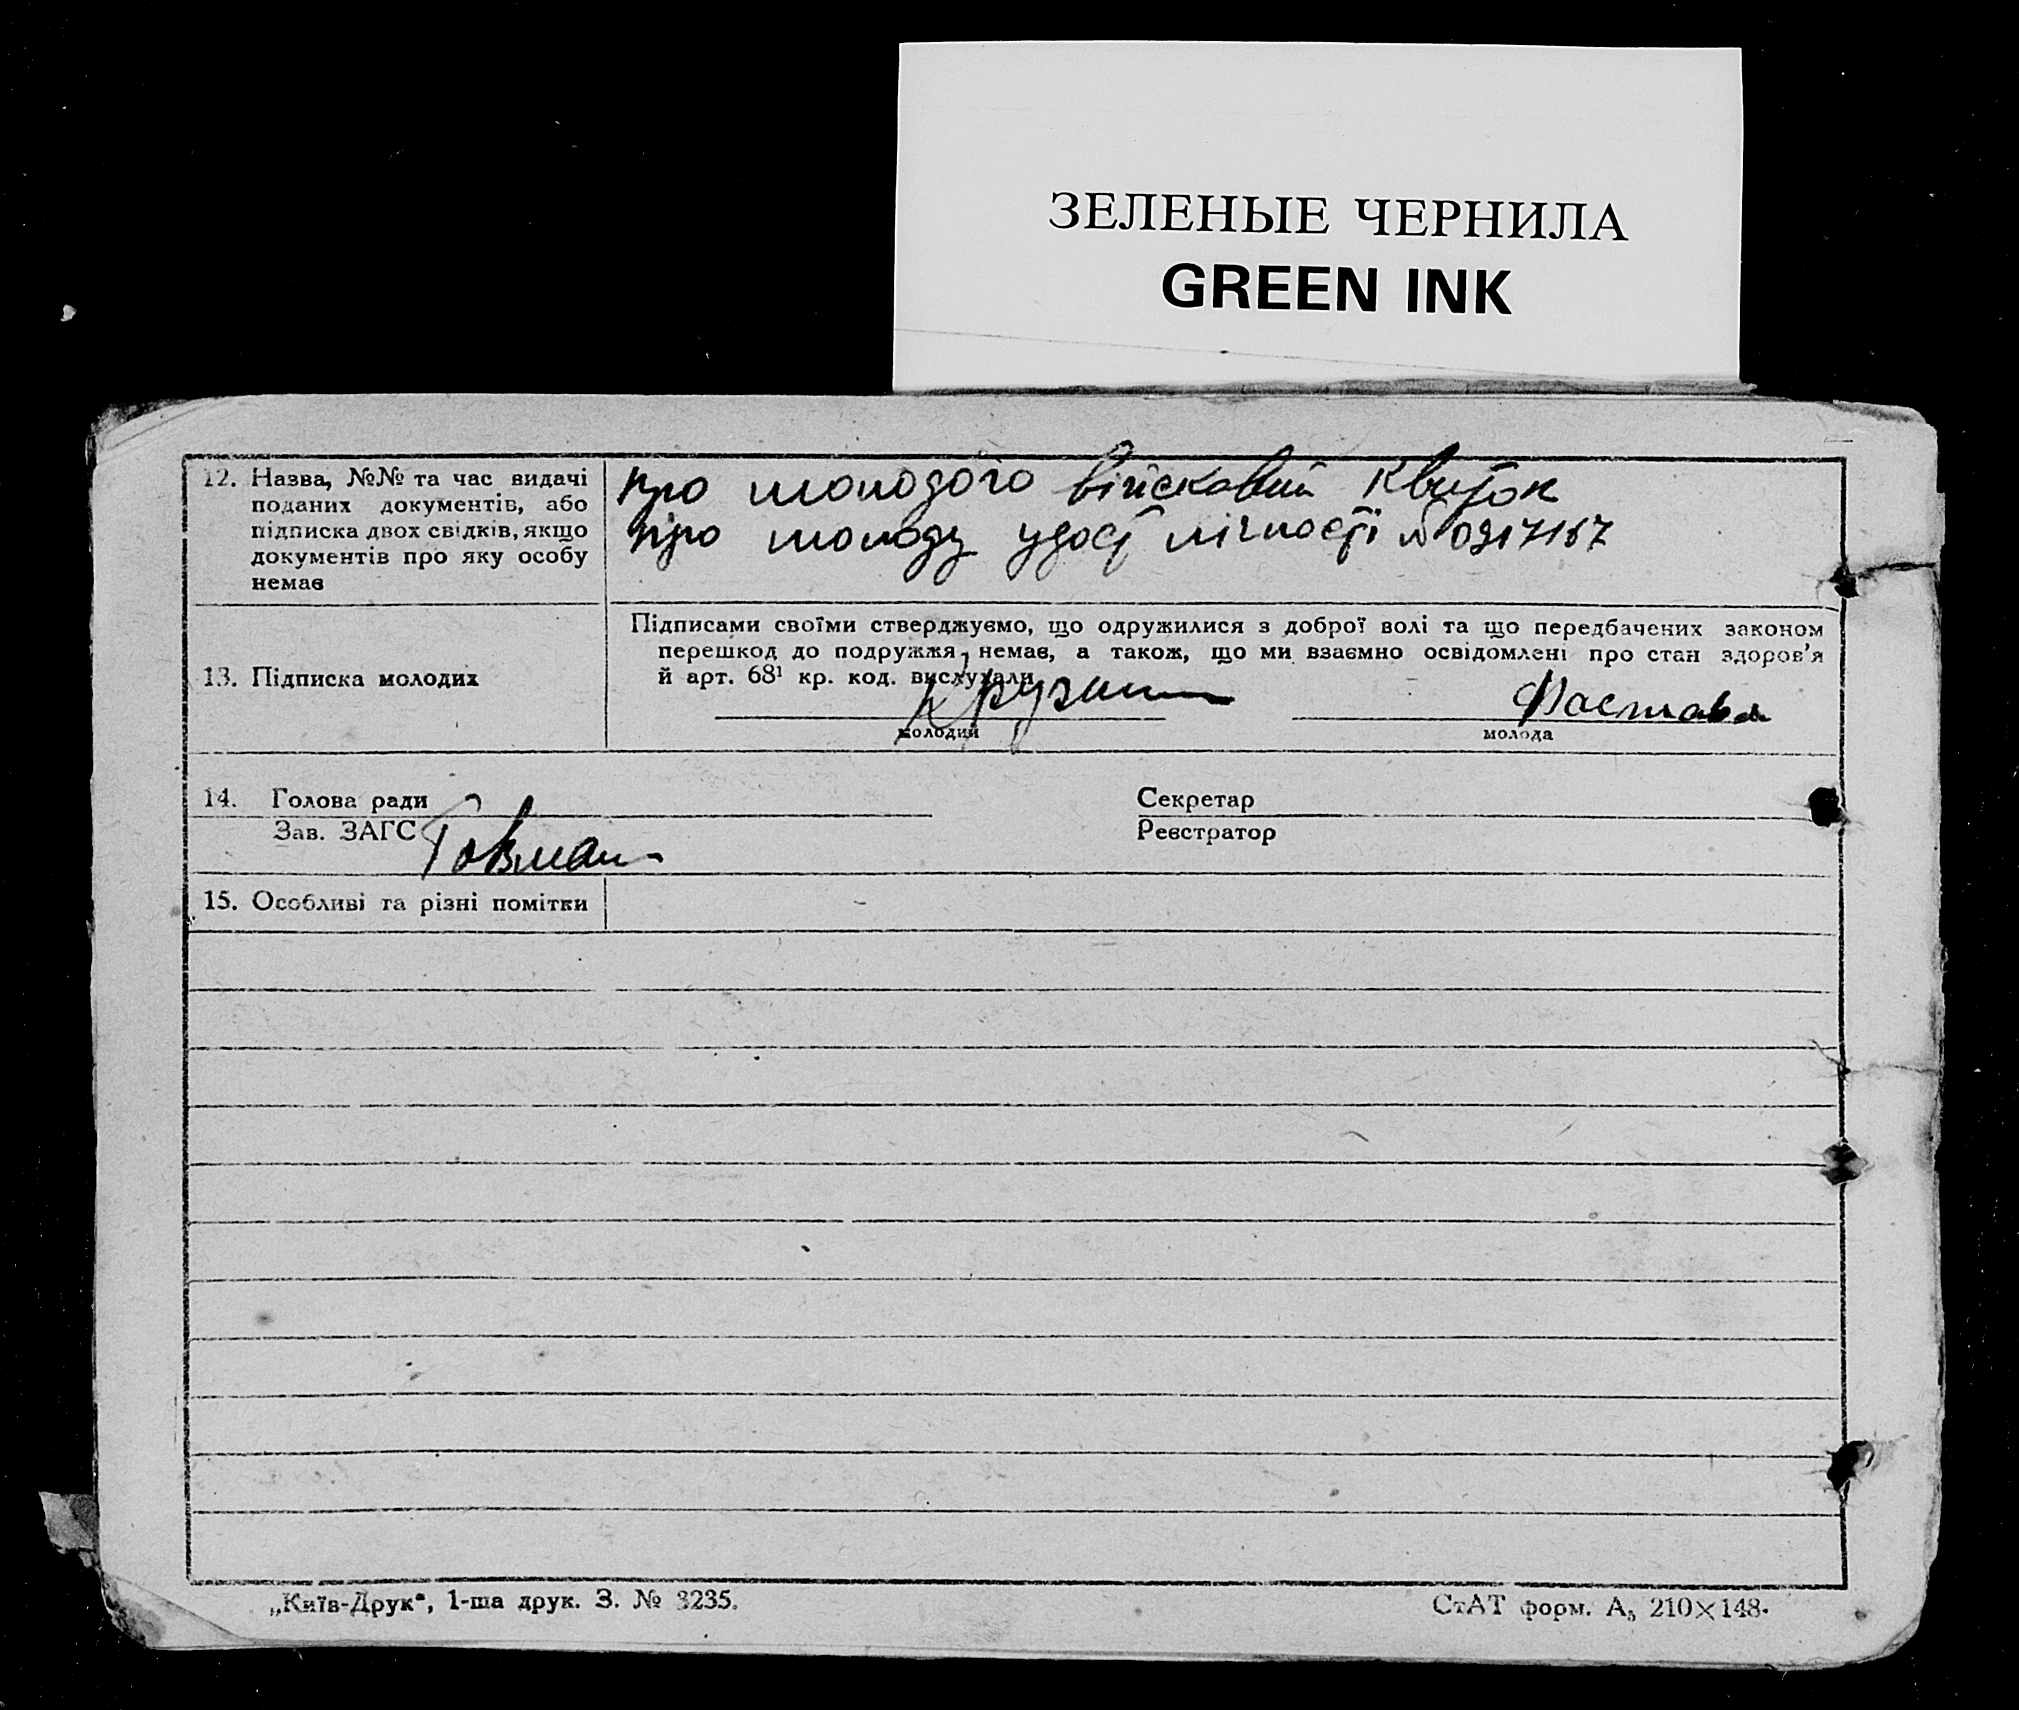 ЗЕЛЕНЫЕ ЧЕРНИЛА
GREEN INK
12. Назва, №№ та час видачі
поданих документів, або
підписка двох свідків, якщо
документів про яку особу
немає
про молодого військовий квиток
про молоду удост лічності №0917167
13. Підписка молодих
Підписами своїми стверджуємо, що одружилися з доброї волі та що передбачених законом
перешкод до подружжя немає, а також, що ми взаємно освідомлені про стан здоров'я
й арт. 68¹ кр. код. вислухали
молодий
молода
14. Голова ради
Секретар
Зав. ЗАГС
Реєстратор
15. Особливі та різні помітки
„Київ-Друк“, 1-ша друк. З. № 3235.
СтАТ форм. А₅ 210×148.